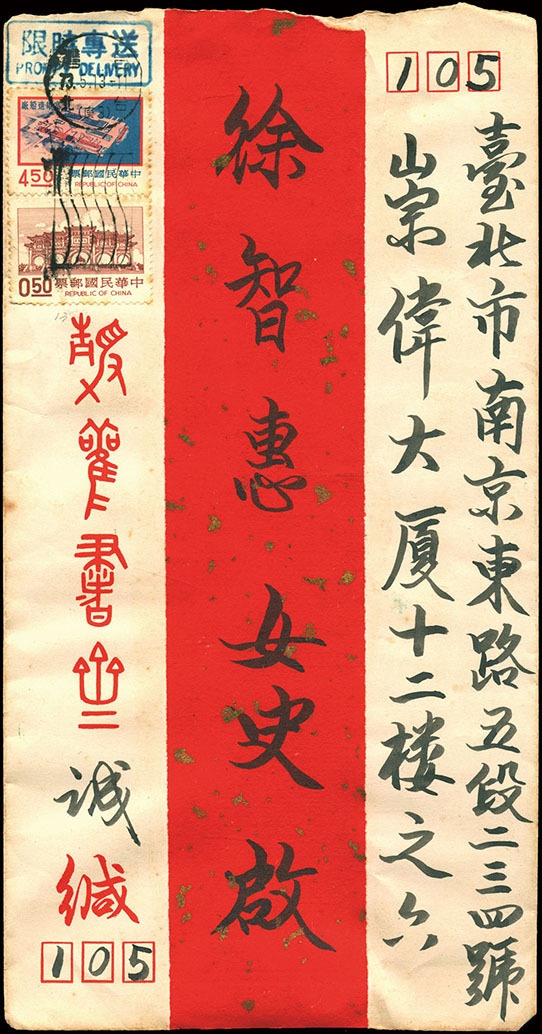 105
臺北市南京東路五段二三四號
山宗偉大厦十二楼之六
徐智惠女史啟
限時專送
PROMPT DELIVERY
450
中華民國郵票
REPUBLIC OF CHINA
050
中華民國郵票
REPUBLIC OF CHINA
書
誠
緘
105